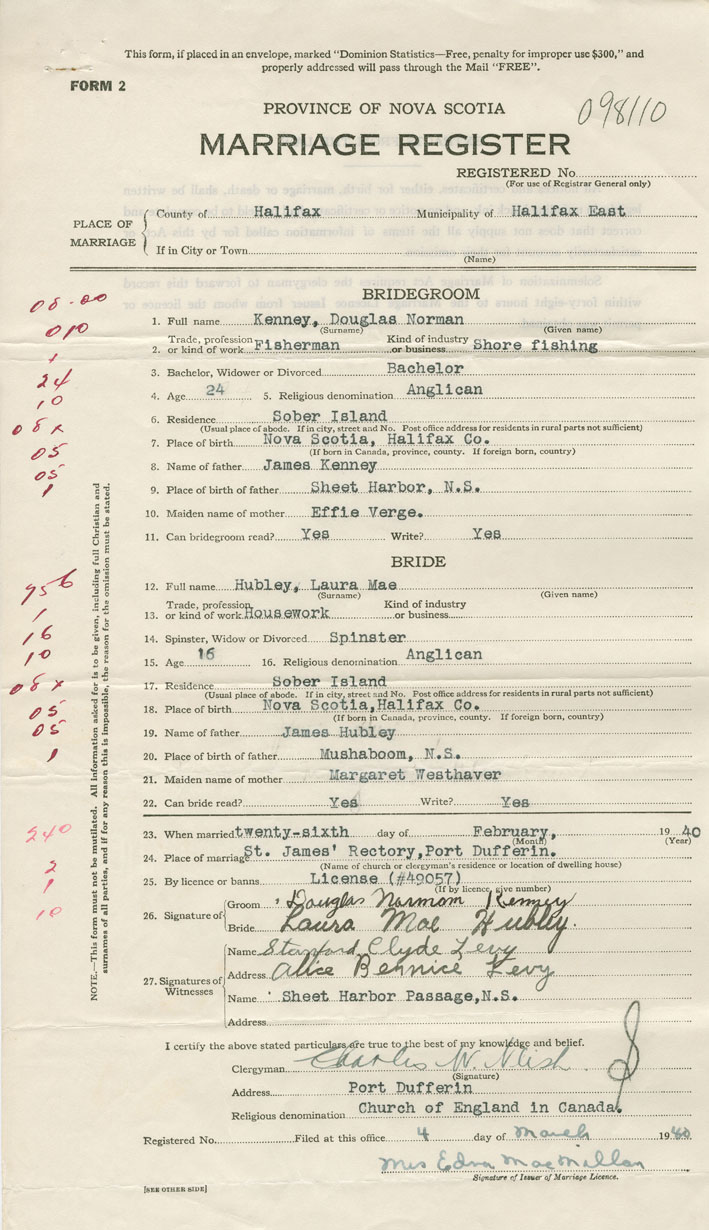 This form, if placed in an envelope, marked "Dominion Statistics—Free, penalty for improper use $300," and
properly addressed will pass through the Mail "FREE".
FORM 2
PROVINCE OF NOVA SCOTIA
098110
MARRIAGE REGISTER
REGISTERED No.
(For use of Registrar General only)
PLACE OF MARRIAGE
County of Halifax Municipality of Halifax East
If in City or Town
(Name)
BRIDEGROOM
08-00
1. Full name Kenney, Douglas Norman
(Surname) (Given name)
010
Trade, profession Kind of industry
2. or kind of work Fisherman or business Shore fishing
1
3. Bachelor, Widower or Divorced Bachelor
24
4. Age 24 5. Religious denomination Anglican
10
6. Residence Sober Island
(Usual place of abode. If in city, street and No. Post office address for residents in rural parts not sufficient)
08x
7. Place of birth Nova Scotia, Halifax Co.
(If born in Canada, province, county. If foreign born, country)
05
8. Name of father James Kenney
05
9. Place of birth of father Sheet Harbor, N.S.
1
10. Maiden name of mother Effie Verge.
11. Can bridegroom read? Yes Write? Yes
BRIDE
956
12. Full name Hubley, Laura Mae
(Surname) (Given name)
1
Trade, profession Kind of industry
13. or kind of work Housework or business
16
14. Spinster, Widow or Divorced Spinster
10
15. Age 16 16. Religious denomination Anglican
08x
17. Residence Sober Island
(Usual place of abode. If in city, street and No. Post office address for residents in rural parts not sufficient)
05
18. Place of birth Nova Scotia, Halifax Co.
(If born in Canada, province, county. If foreign born, country)
05
19. Name of father James Hubley
1
20. Place of birth of father Mushaboom, N.S.
21. Maiden name of mother Margaret Westhaver
22. Can bride read? Yes Write? Yes
240
23. When married twenty-sixth day of February, 1940
(Month) (Year)
2
24. Place of marriage St. James' Rectory, Port Dufferin.
(Name of church or clergyman's residence or location of dwelling house)
1
25. By licence or banns License (#49057)
(If by licence, give number)
10
26. Signature of
Groom Douglas Normom Kenney
Bride Laura Mae Hubley.
27. Signatures of Witnesses
Name Stanford Clyde Levy
Address Alice Bernice Levy
Name Sheet Harbor Passage, N.S.
Address
I certify the above stated particulars are true to the best of my knowledge and belief.
Clergyman Charles W.
(Signature)
Address Port Dufferin
Religious denomination Church of England in Canada.
Registered No. Filed at this office 4 day of March 1940
Mrs Edna MacMillan
Signature of Issuer of Marriage Licence.
[SEE OTHER SIDE]
NOTE.—This form must not be mutilated. All information asked for is to be given, including full Christian and
surnames of all parties, and if for any reason this is impossible, the reason for the omission must be stated.